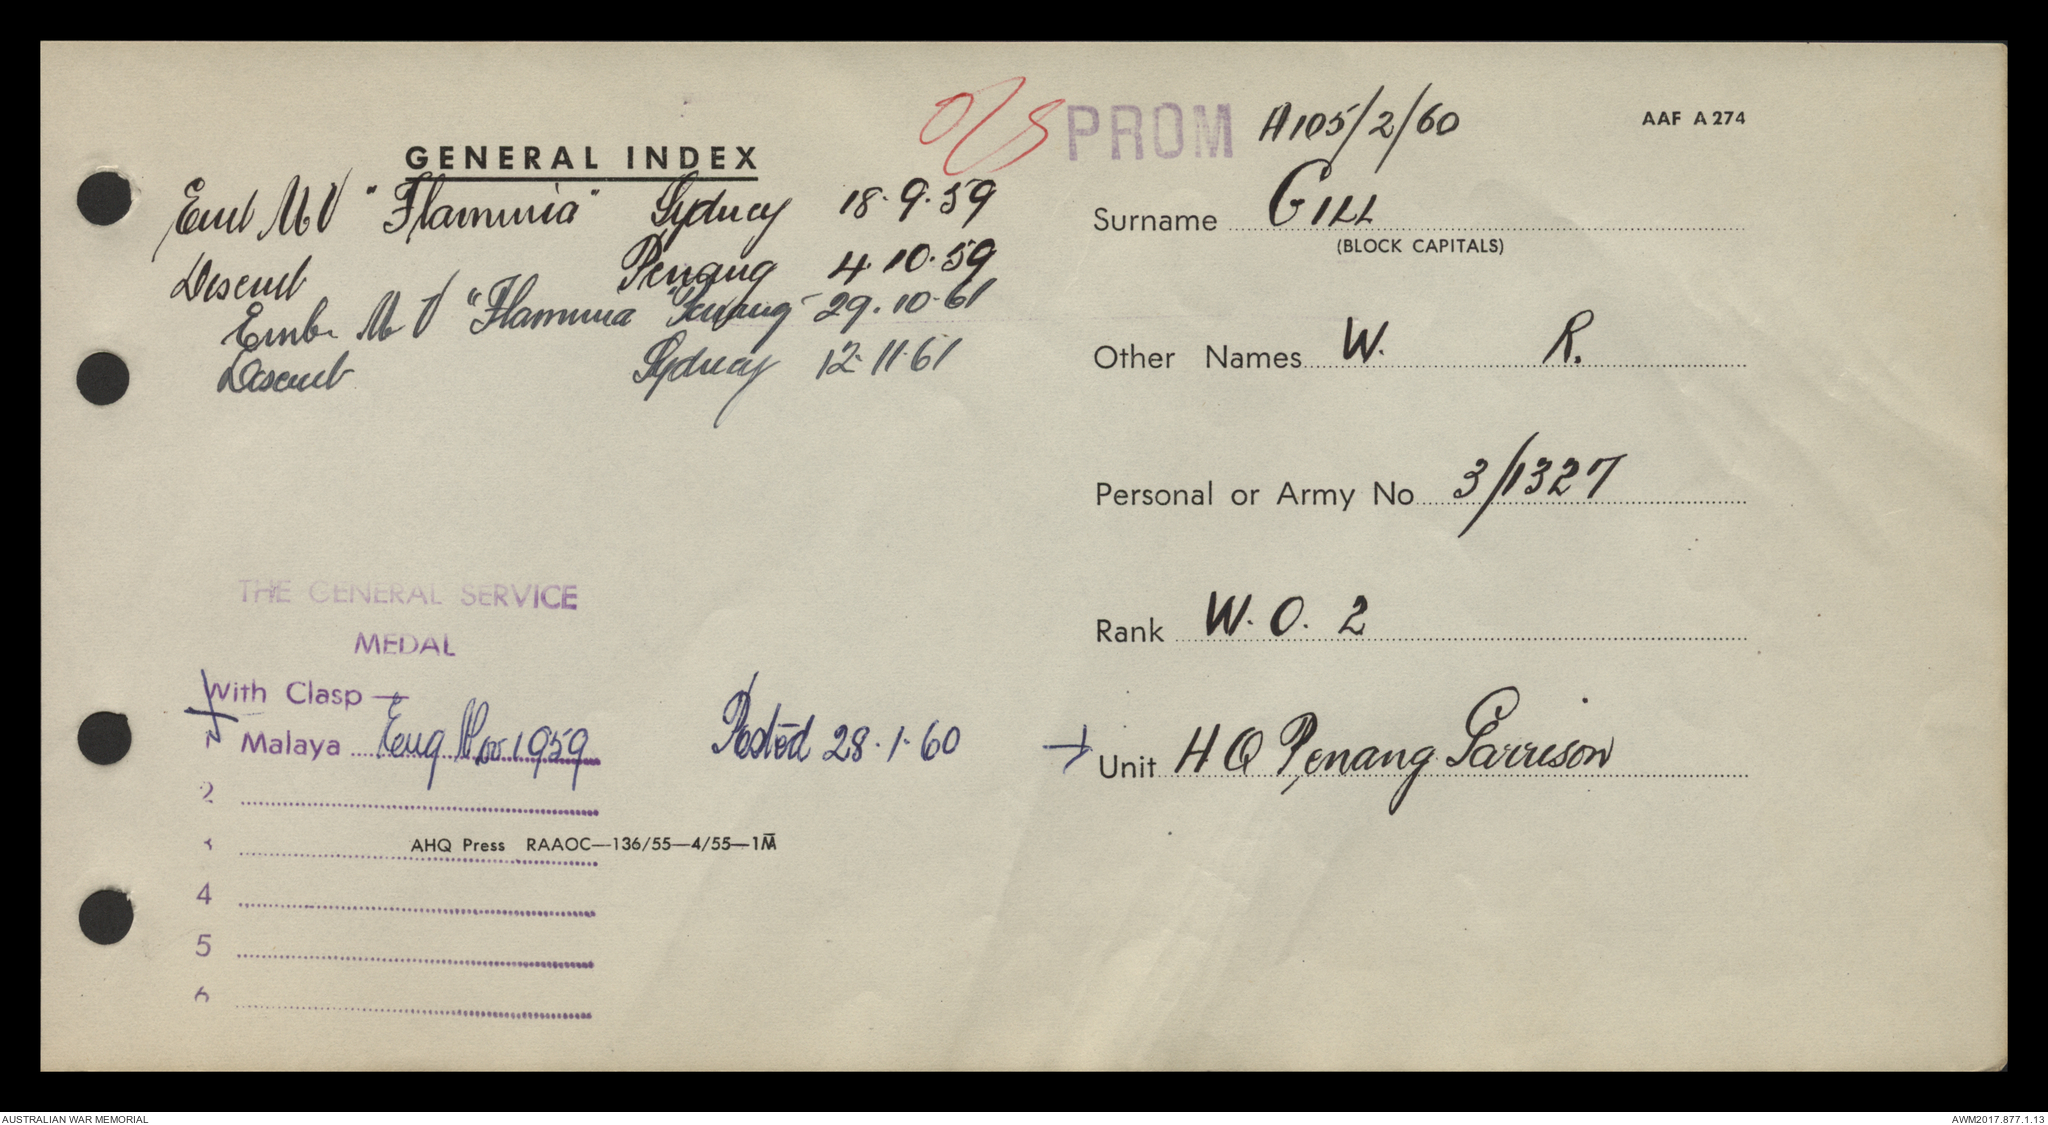 O/S PROM A105/2/60
AAF A274
GENERAL INDEX
Emb M V "Flaminia" Sydney 18.9.59
Disemb Penang 4.10.59
Emb. M V "Flaminia" Penang 29.10.61
Disemb Sydney 12.11.61
Surname GILL
(BLOCK CAPITALS)
Other Names W. R.
Personal or Army No 3/1327
Rank W.O. 2
Unit H Q Penang Garrison
THE GENERAL SERVICE
MEDAL
With Clasp
1 Malaya Eng Nov 1959 Posted 28.1.60
2
3
AHQ Press RAAOC—136/55—4/55—1M
4
5
6
AUSTRALIAN WAR MEMORIAL
AWM2017.877.1.13